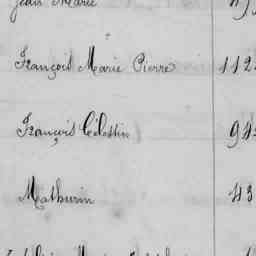 Jean Marie
François Marie Pierre 112
François Célestin 94
Mathurin 43